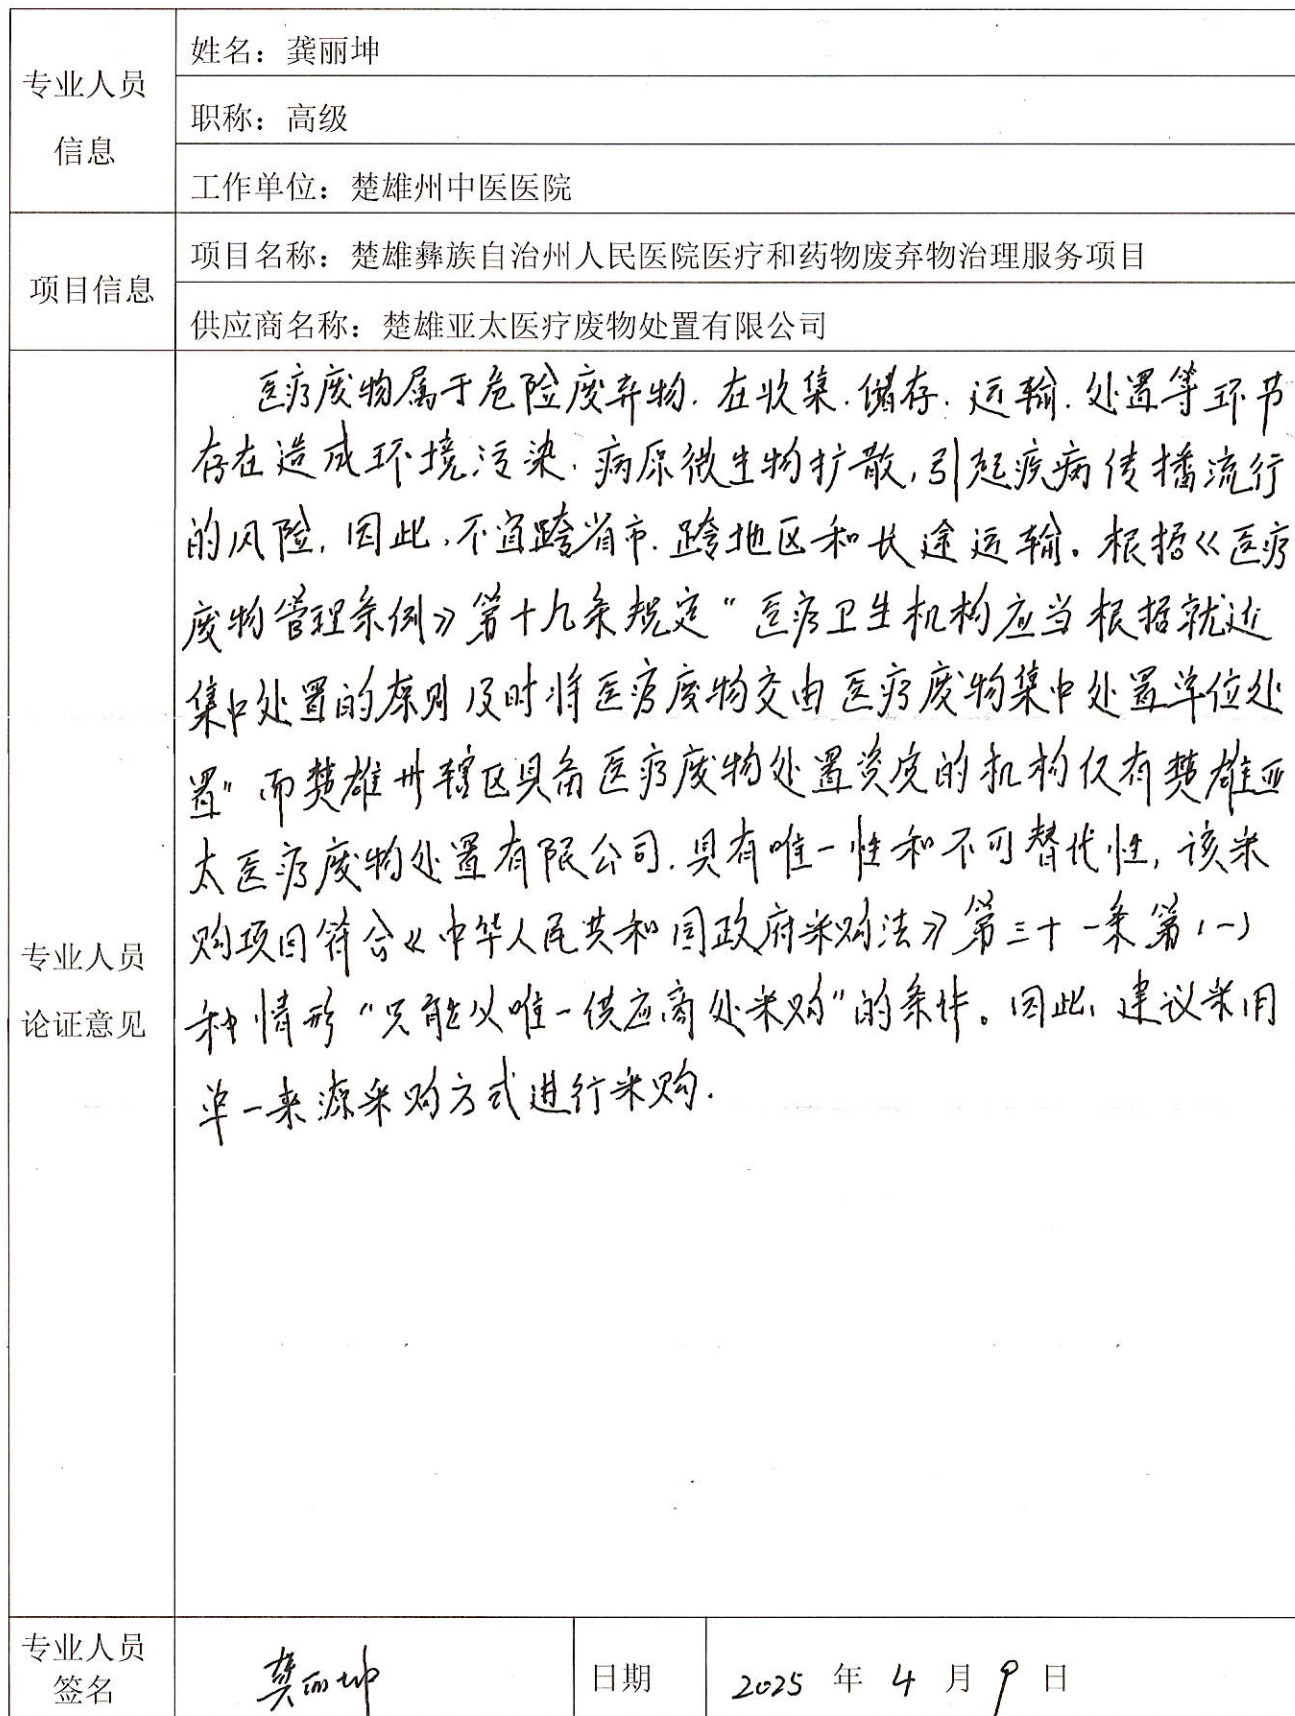 专业人员
信息
姓名：龚丽坤
职称：高级
工作单位：楚雄州中医医院
项目信息
项目名称：楚雄彝族自治州人民医院医疗和药物废弃物治理服务项目
供应商名称：楚雄亚太医疗废物处置有限公司
专业人员
论证意见
医疗废物属于危险废弃物.在收集.储存.运输.处置等环节
存在造成环境污染.病原微生物扩散,引起疾病传播流行
的风险,因此,不宜跨省市.跨地区和长途运输。根据《医疗
废物管理条例》第十九条规定“医疗卫生机构应当根据就近
集中处置的原则及时将医疗废物交由医疗废物集中处置单位处
置”而楚雄州辖区具备医疗废物处置资质的机构仅有楚雄亚
太医疗废物处置有限公司.具有唯一性和不可替代性,该采
购项目符合《中华人民共和国政府采购法》第三十一条第(一)
种情形“只能从唯一供应商处采购”的条件。因此,建议采用
单一来源采购方式进行采购.
专业人员
签名
龚丽坤
日期
2025 年 4 月 9 日